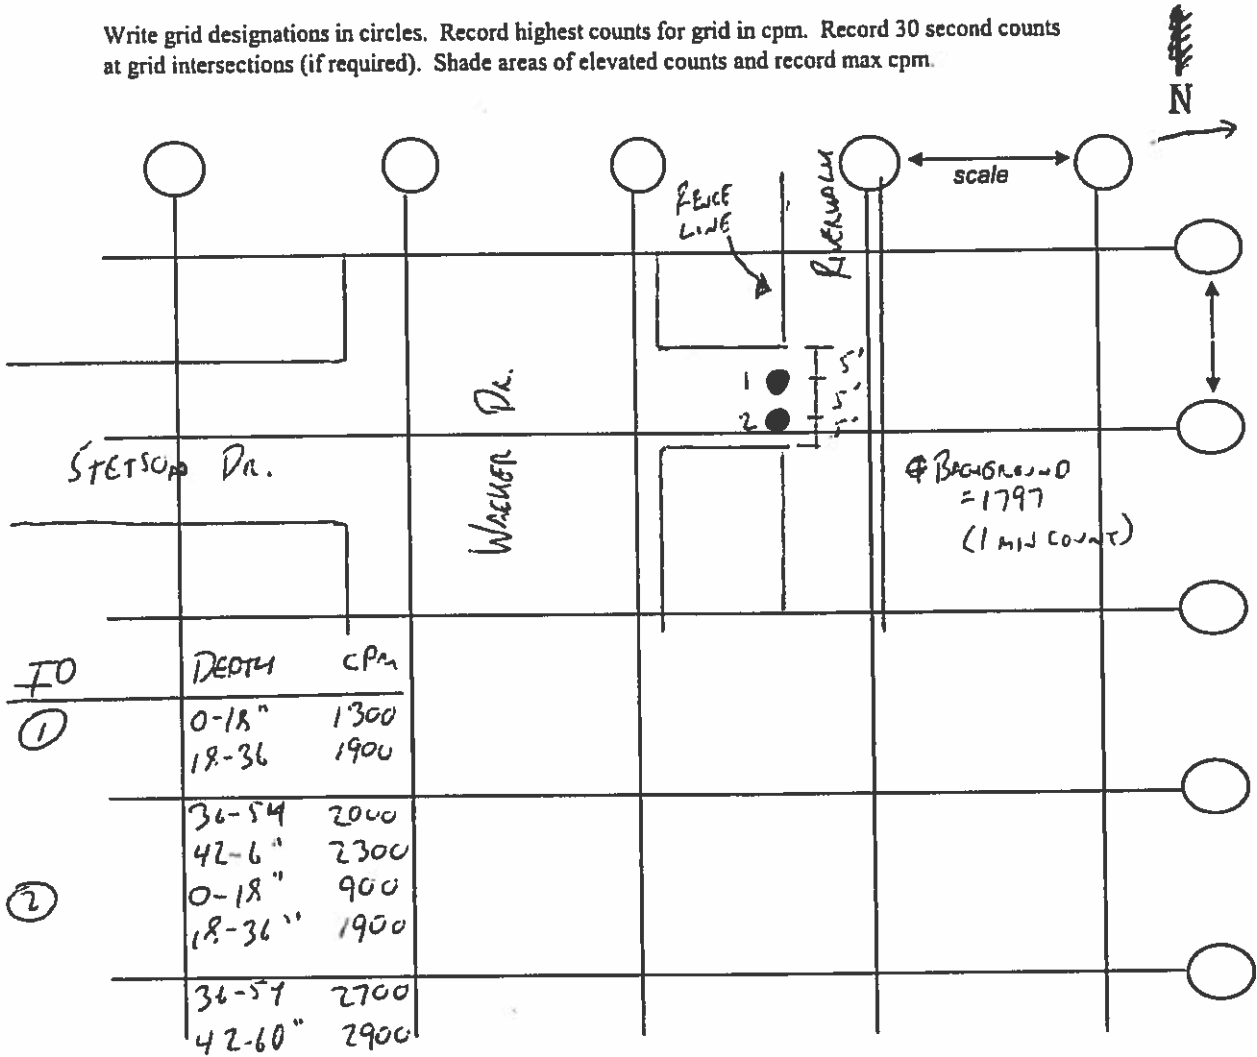 Write grid designations in circles. Record highest counts for grid in cpm. Record 30 second counts
at grid intersections (if required). Shade areas of elevated counts and record max cpm.
N
scale
FENCE
LINE
RIVERWALK
5'
1
5'
2
5'
STETSON DR.
WACKER DR.
BACKGROUND
=1797
(1 MIN COUNT)
ID DEPTH CPM
1 0-18" 1300
18-36 1900
36-54 2000
42-6" 2300
2 0-18" 900
18-36" 1900
36-54 2700
42-60" 2900